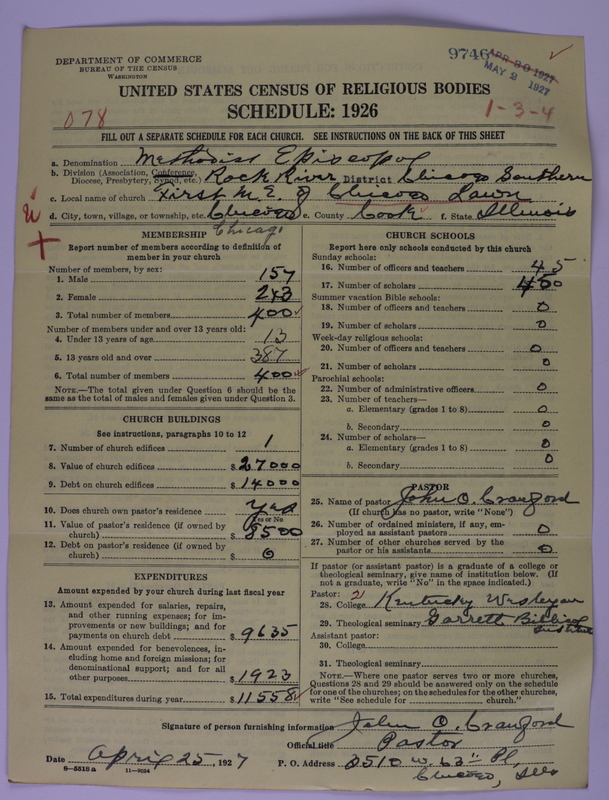 DEPARTMENT OF COMMERCE
BUREAU OF THE CENSUS
WASHINGTON
9746
APR 30 1927
MAY 2 1927
UNITED STATES CENSUS OF RELIGIOUS BODIES
SCHEDULE: 1926
078
1-3-4
FILL OUT A SEPARATE SCHEDULE FOR EACH CHURCH. SEE INSTRUCTIONS ON THE BACK OF THIS SHEET
a. Denomination Methodist Episcopal
b. Division (Association, Conference, Diocese, Presbytery, Synod, etc.) Rock River District Chicago Southern
c. Local name of church First M. E. of Chicago Lawn
d. City, town, village, or township, etc. Chicago e. County Cook f. State Illinois
Chicago
MEMBERSHIP
Report number of members according to definition of
member in your church
Number of members, by sex:
1. Male 157
2. Female 243
3. Total number of members 400
Number of members under and over 13 years old:
4. Under 13 years of age 13
5. 13 years old and over 387
6. Total number of members 400
NOTE.—The total given under Question 6 should be
same as the total of males and females given under Question 3.
CHURCH BUILDINGS
See instructions, paragraphs 10 to 12
7. Number of church edifices 1
8. Value of church edifices $ 27000
9. Debt on church edifices $ 14000
10. Does church own pastor's residence? Yes
Yes or No
11. Value of pastor's residence (if owned by
church) $ 8500
12. Debt on pastor's residence (if owned by
church) $ 0
EXPENDITURES
Amount expended by your church during last fiscal year
13. Amount expended for salaries, repairs,
and other running expenses; for im-
provements or new buildings; and for
payments on church debt $ 9635
14. Amount expended for benevolences, in-
cluding home and foreign missions; for
denominational support; and for all
other purposes $ 1923
15. Total expenditures during year $ 11558
CHURCH SCHOOLS
Report here only schools conducted by this church
Sunday schools:
16. Number of officers and teachers 45
17. Number of scholars 400
Summer vacation Bible schools:
18. Number of officers and teachers 0
19. Number of scholars 0
Week-day religious schools:
20. Number of officers and teachers 0
21. Number of scholars 0
Parochial schools:
22. Number of administrative officers 0
23. Number of teachers—
a. Elementary (grades 1 to 8) 0
b. Secondary 0
24. Number of scholars—
a. Elementary (grades 1 to 8) 0
b. Secondary 0
PASTOR
25. Name of pastor John O. Cranford
(If church has no pastor, write "None")
26. Number of ordained ministers, if any, em-
ployed as assistant pastors 0
27. Number of other churches served by the
pastor or his assistants 0
If pastor (or assistant pastor) is a graduate of a college or
theological seminary, give name of institution below. (If
not a graduate, write "No" in the space indicated.)
Pastor: 2
28. College Kentucky Wesleyan
29. Theological seminary Garrett Biblical Institute
Assistant pastor:
30. College
31. Theological seminary
NOTE.—Where one pastor serves two or more churches,
Questions 28 and 29 should be answered only on the schedule
for one of the churches; on the schedules for the other churches,
write "See schedule for church."
Signature of person furnishing information John O. Cranford
Official title Pastor
Date April 25, 1927 P. O. Address 3510 W. 63" Pl,
Chicago, Ills
8-5518a 11-9024